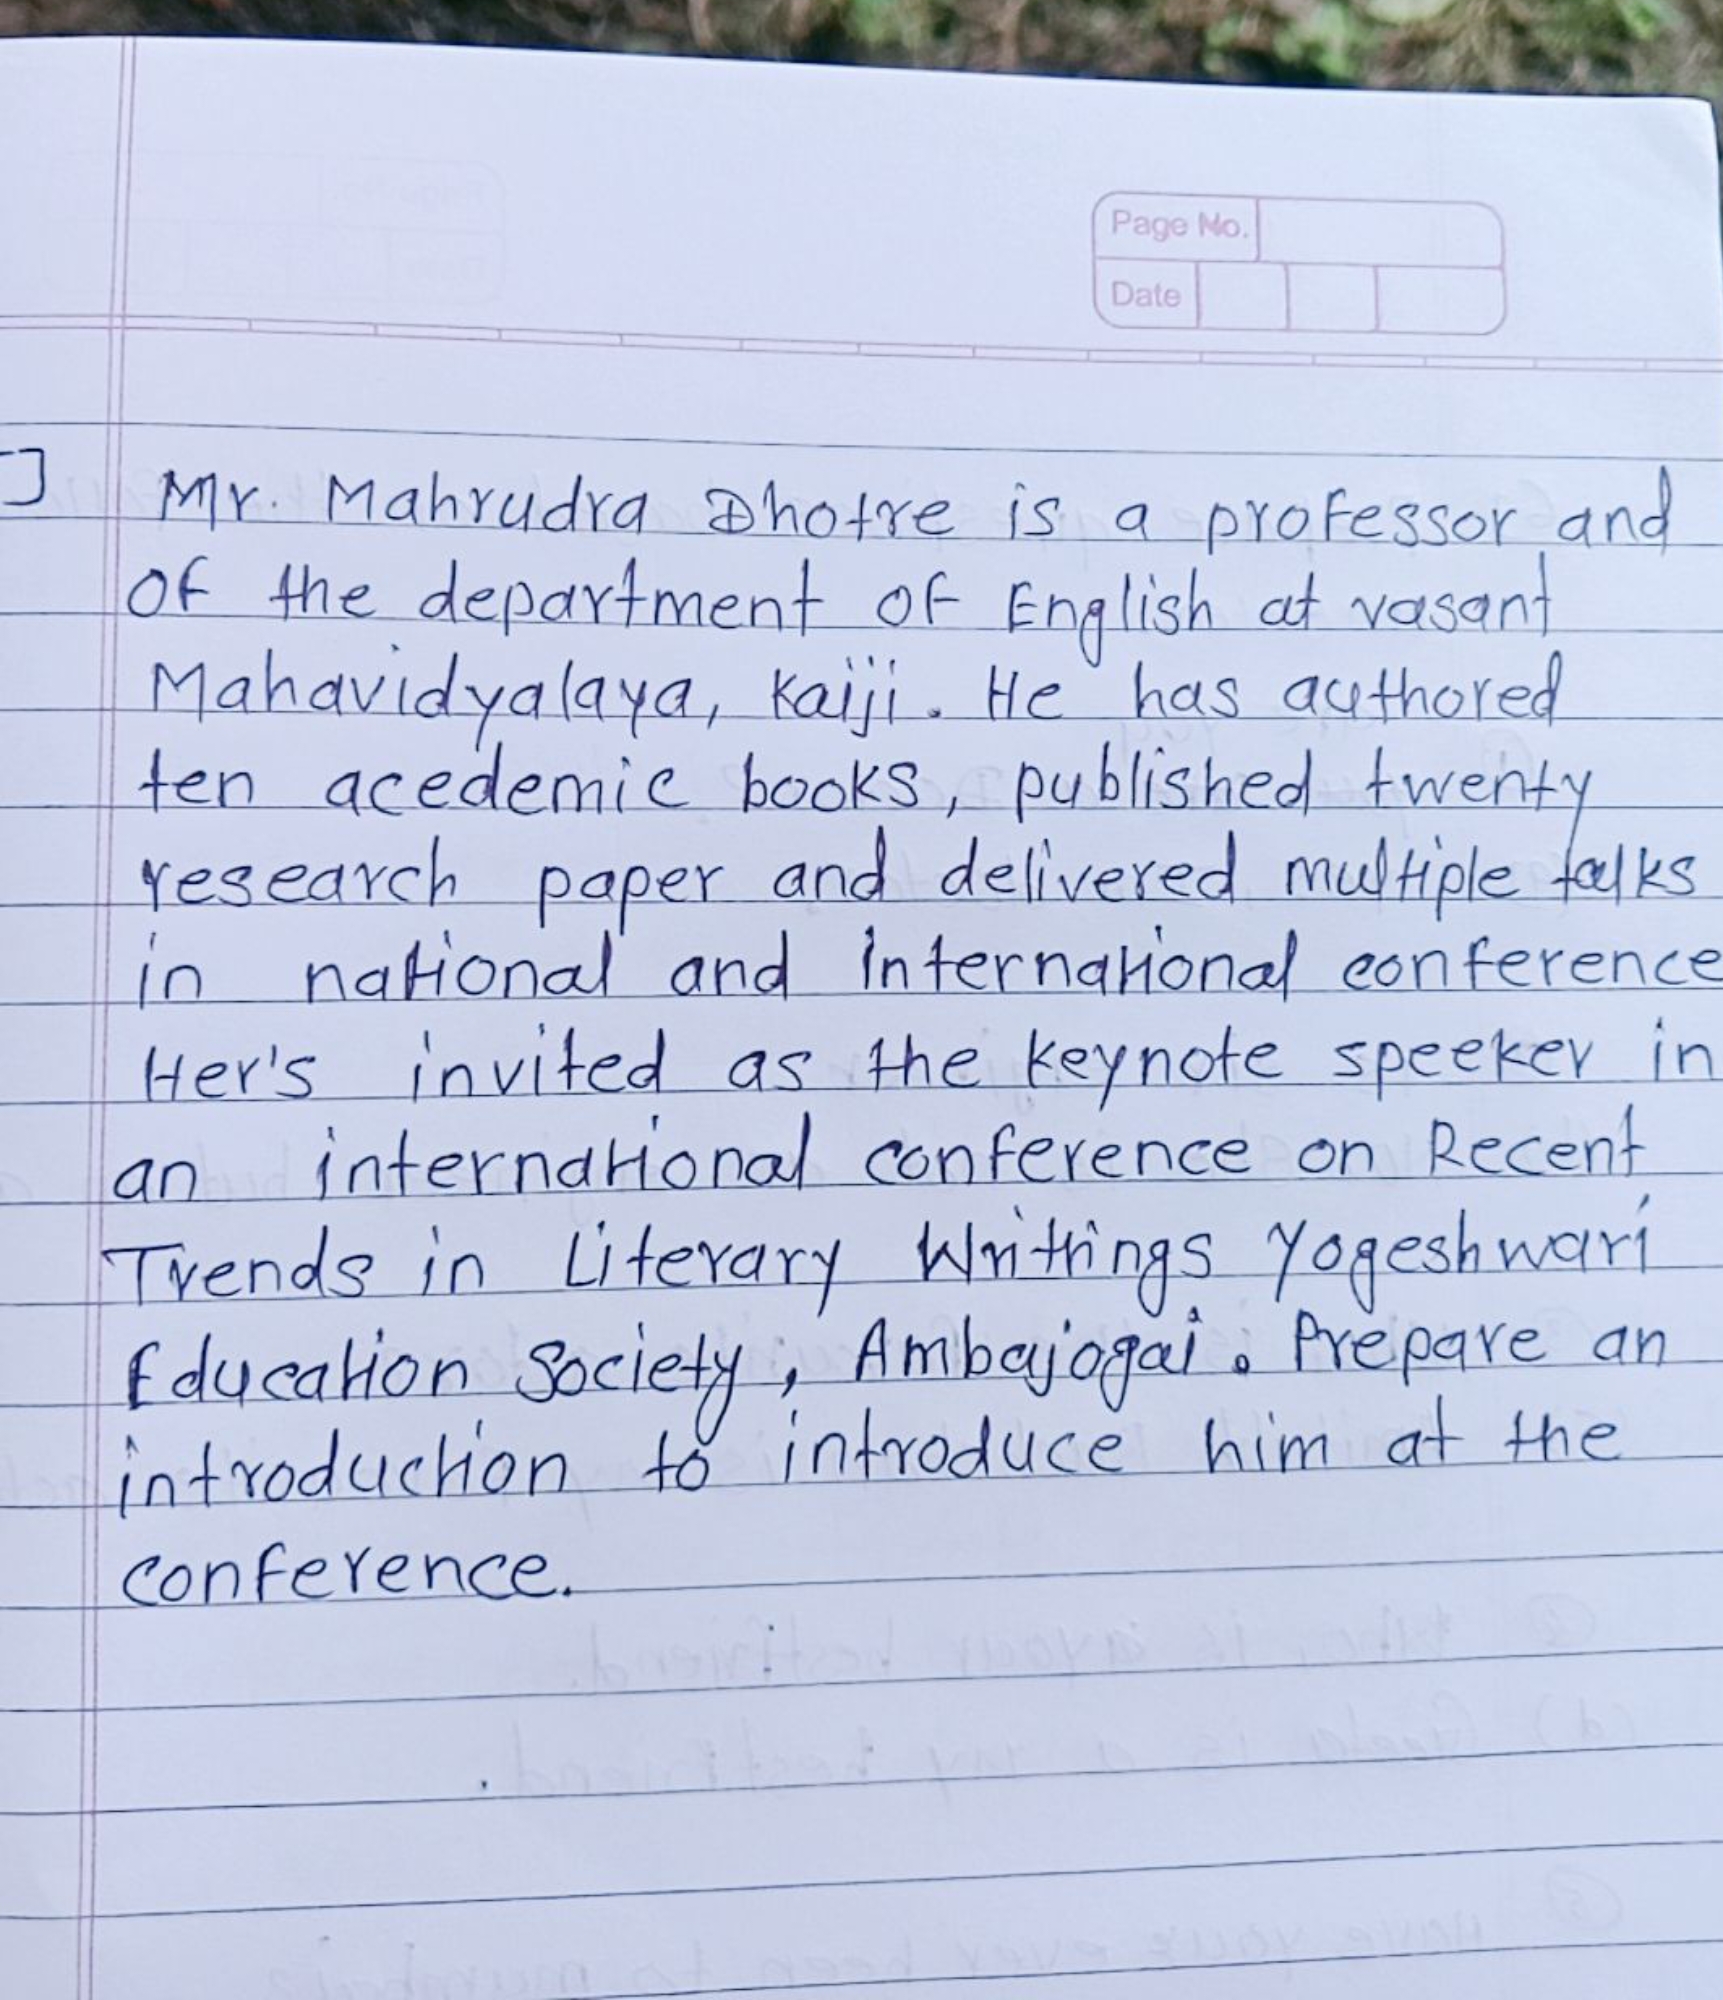 Page No.
Date
] Mr. Mahrudra Dhotre is a professor and
of the department of English at vasant
Mahavidyalaya, Kaiji. He has authored
ten acedemic books, published twenty
research paper and delivered multiple talks
in national and international conference
Her's invited as the keynote speeker in
an international conference on Recent
Trends in Literary Writtings Yogeshwari
Education Society, Ambajogai. Prepare an
introduction to introduce him at the
conference.